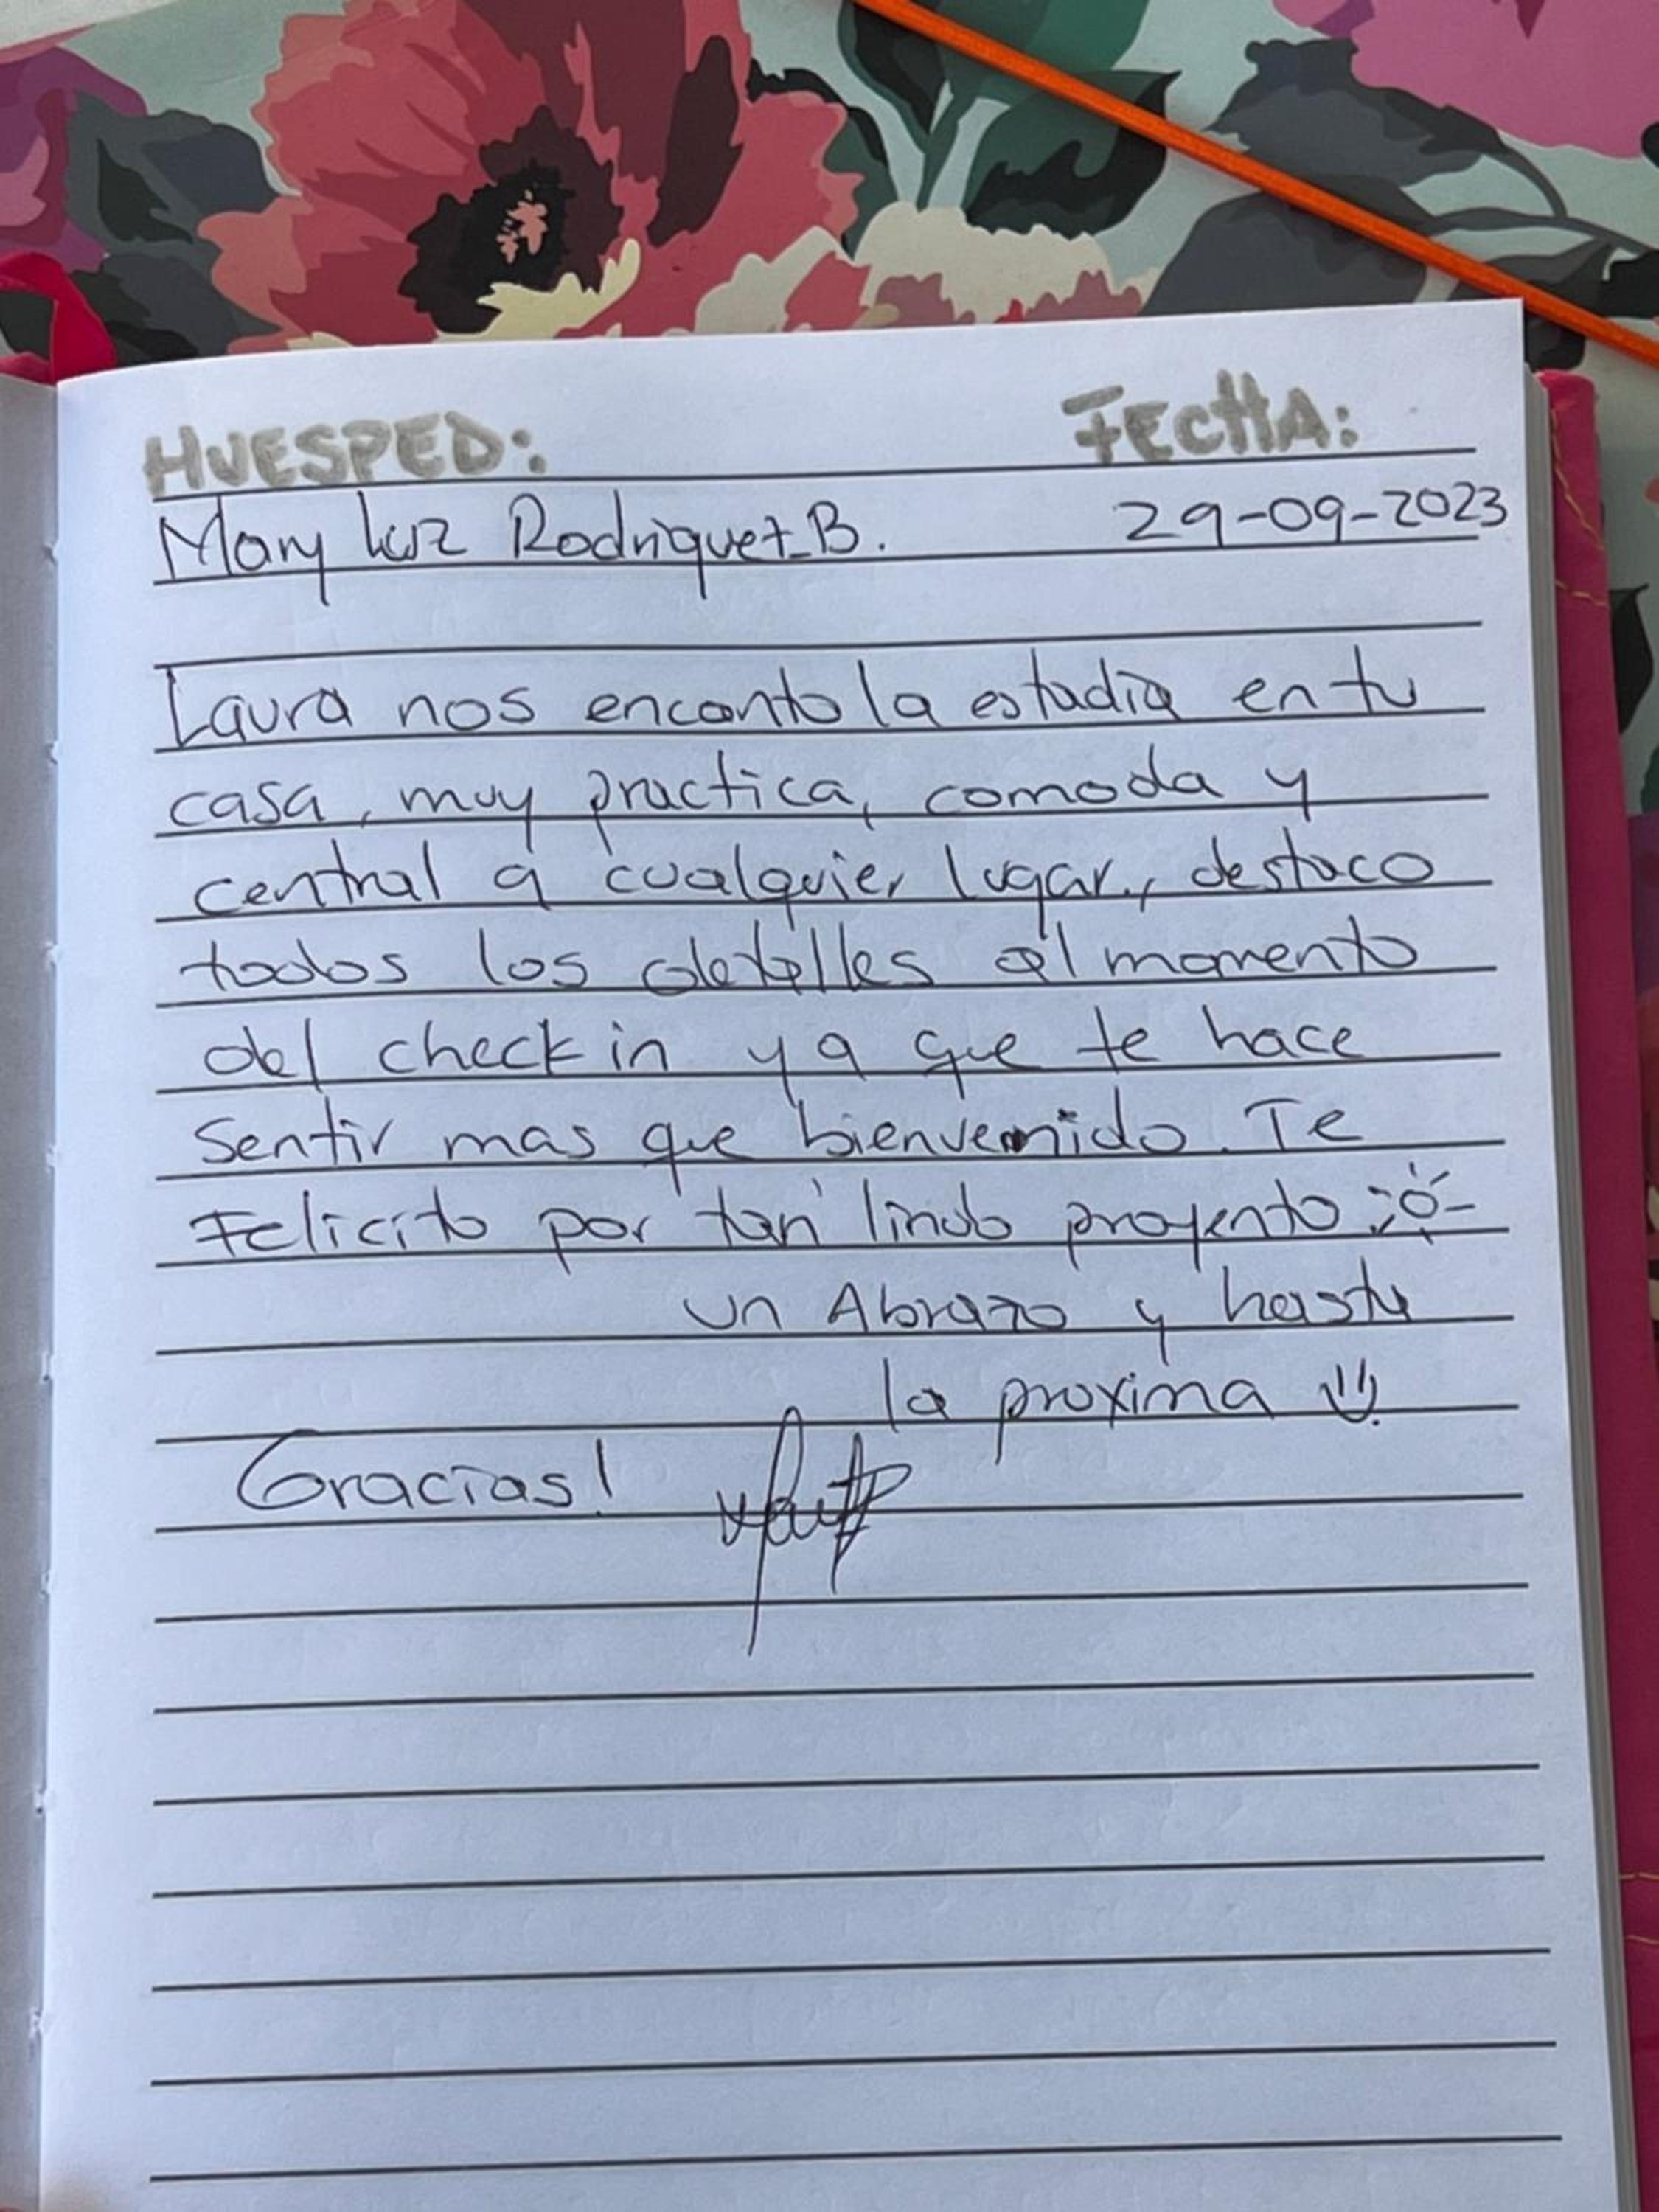 HUESPED: FECHA:
Mary Luz Rodriguez B. 29-09-2023
Laura nos encanto la estadia en tu
casa, muy practica, comoda y
central a cualquier lugar, destaco
todos los detalles al momento
del check in ya que te hace
Sentir mas que bienvenido. Te
Felicito por tan lindo proyento
un Abrazo y hasta
la proxima
Gracias!